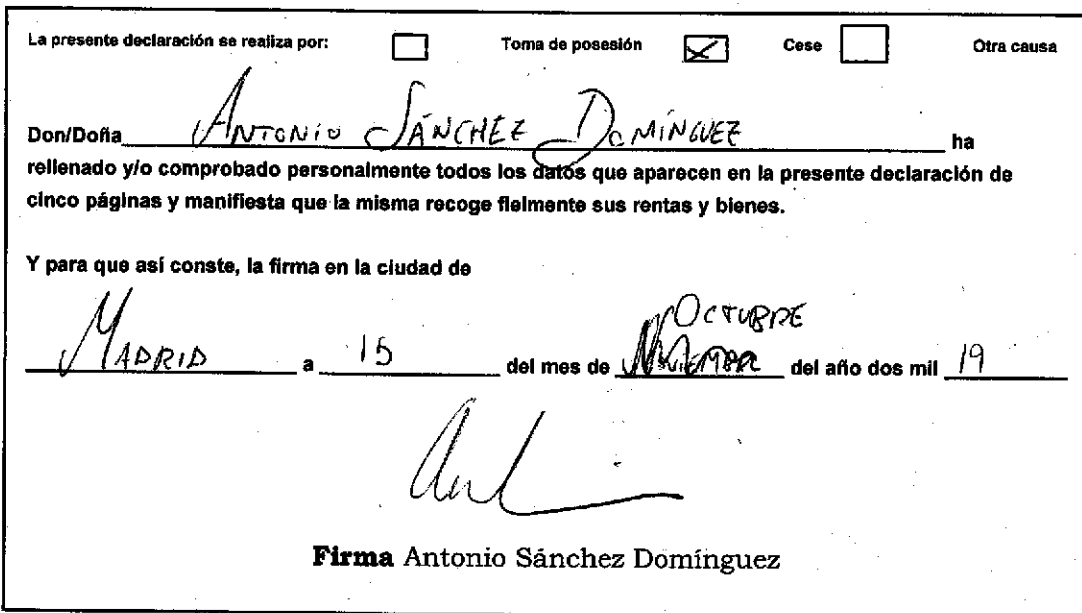 La presente declaración se realiza por: Toma de posesión Cese Otra causa
Don/Doña ANTONIO SÁNCHEZ DOMÍNGUEZ ha
rellenado y/o comprobado personalmente todos los datos que aparecen en la presente declaración de
cinco páginas y manifiesta que la misma recoge fielmente sus rentas y bienes.
Y para que así conste, la firma en la ciudad de
OCTUBRE
MADRID a 15 del mes de del año dos mil 19
Firma Antonio Sánchez Domínguez